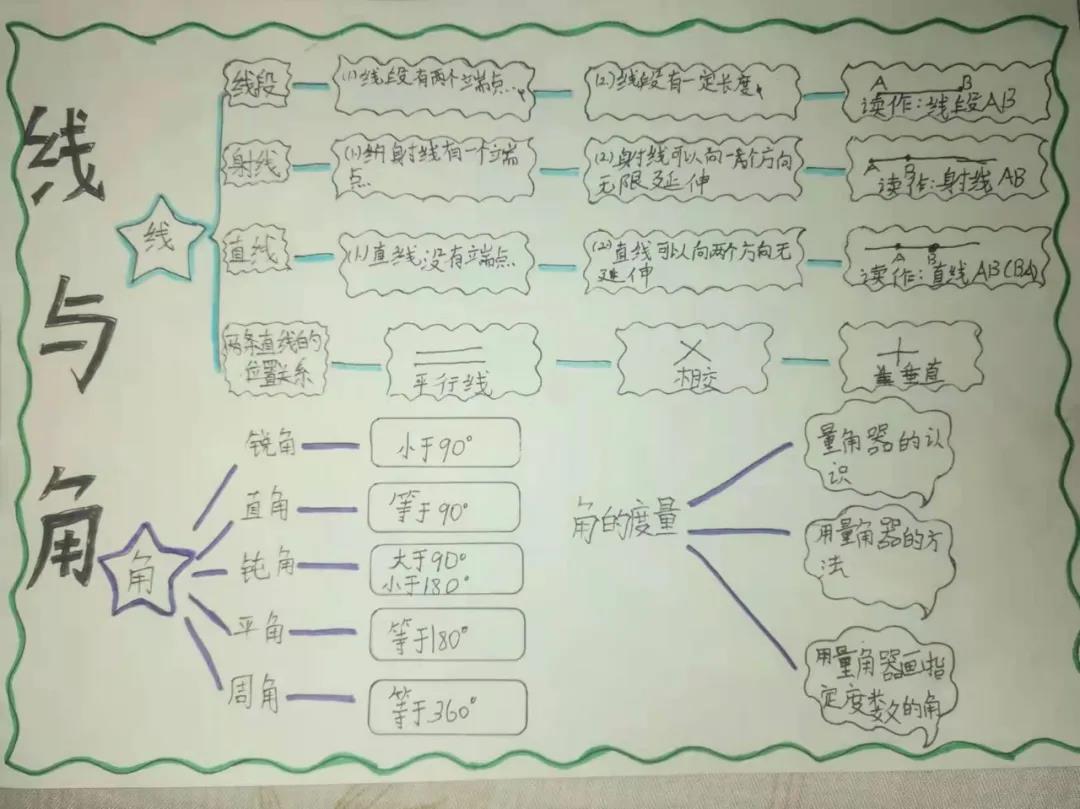 线与角
线
线段
(1)线段有两个端点.
(2)线段有一定长度.
A B
读作:线段AB
射线
(1)射线有一个端
点
(2)射线可以向一个方向
无限延伸
A B
读作:射线AB
直线
(1)直线没有端点
(2)直线可以向两个方向无
延伸
A B
读作:直线AB(BA)
两条直线的
位置关系
平行线
相交
垂直
角
锐角
小于90°
直角
等于90°
钝角
大于90°
小于180°
平角
等于180°
周角
等于360°
角的度量
量角器的认
识
用量角器的方
法
用量角器画指
定度数的角